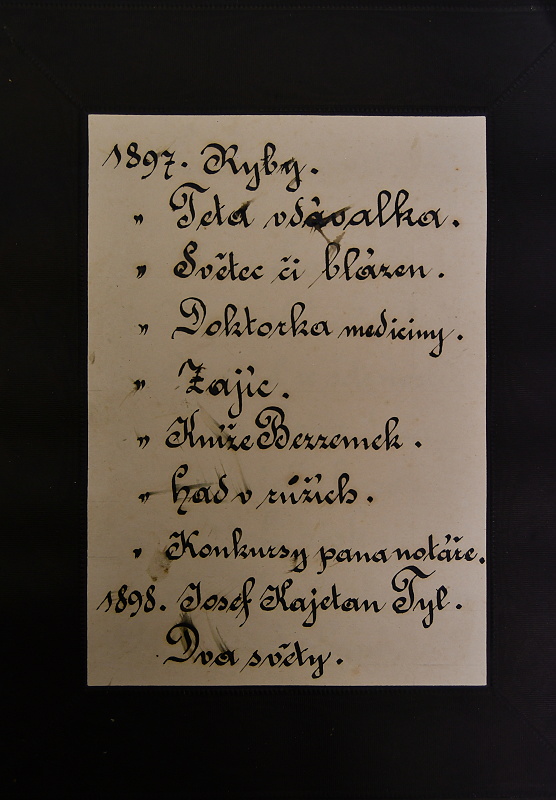 1897. Ryby.
„ Teta vdavalka.
„ Světec či blázen.
„ Doktorka mediciny.
„ Zajíc.
„ Kníže Bezzemek.
„ Had v růžích.
„ Konkursy pana notáře.
1898. Josef Kajetan Tyl.
Dva světy.